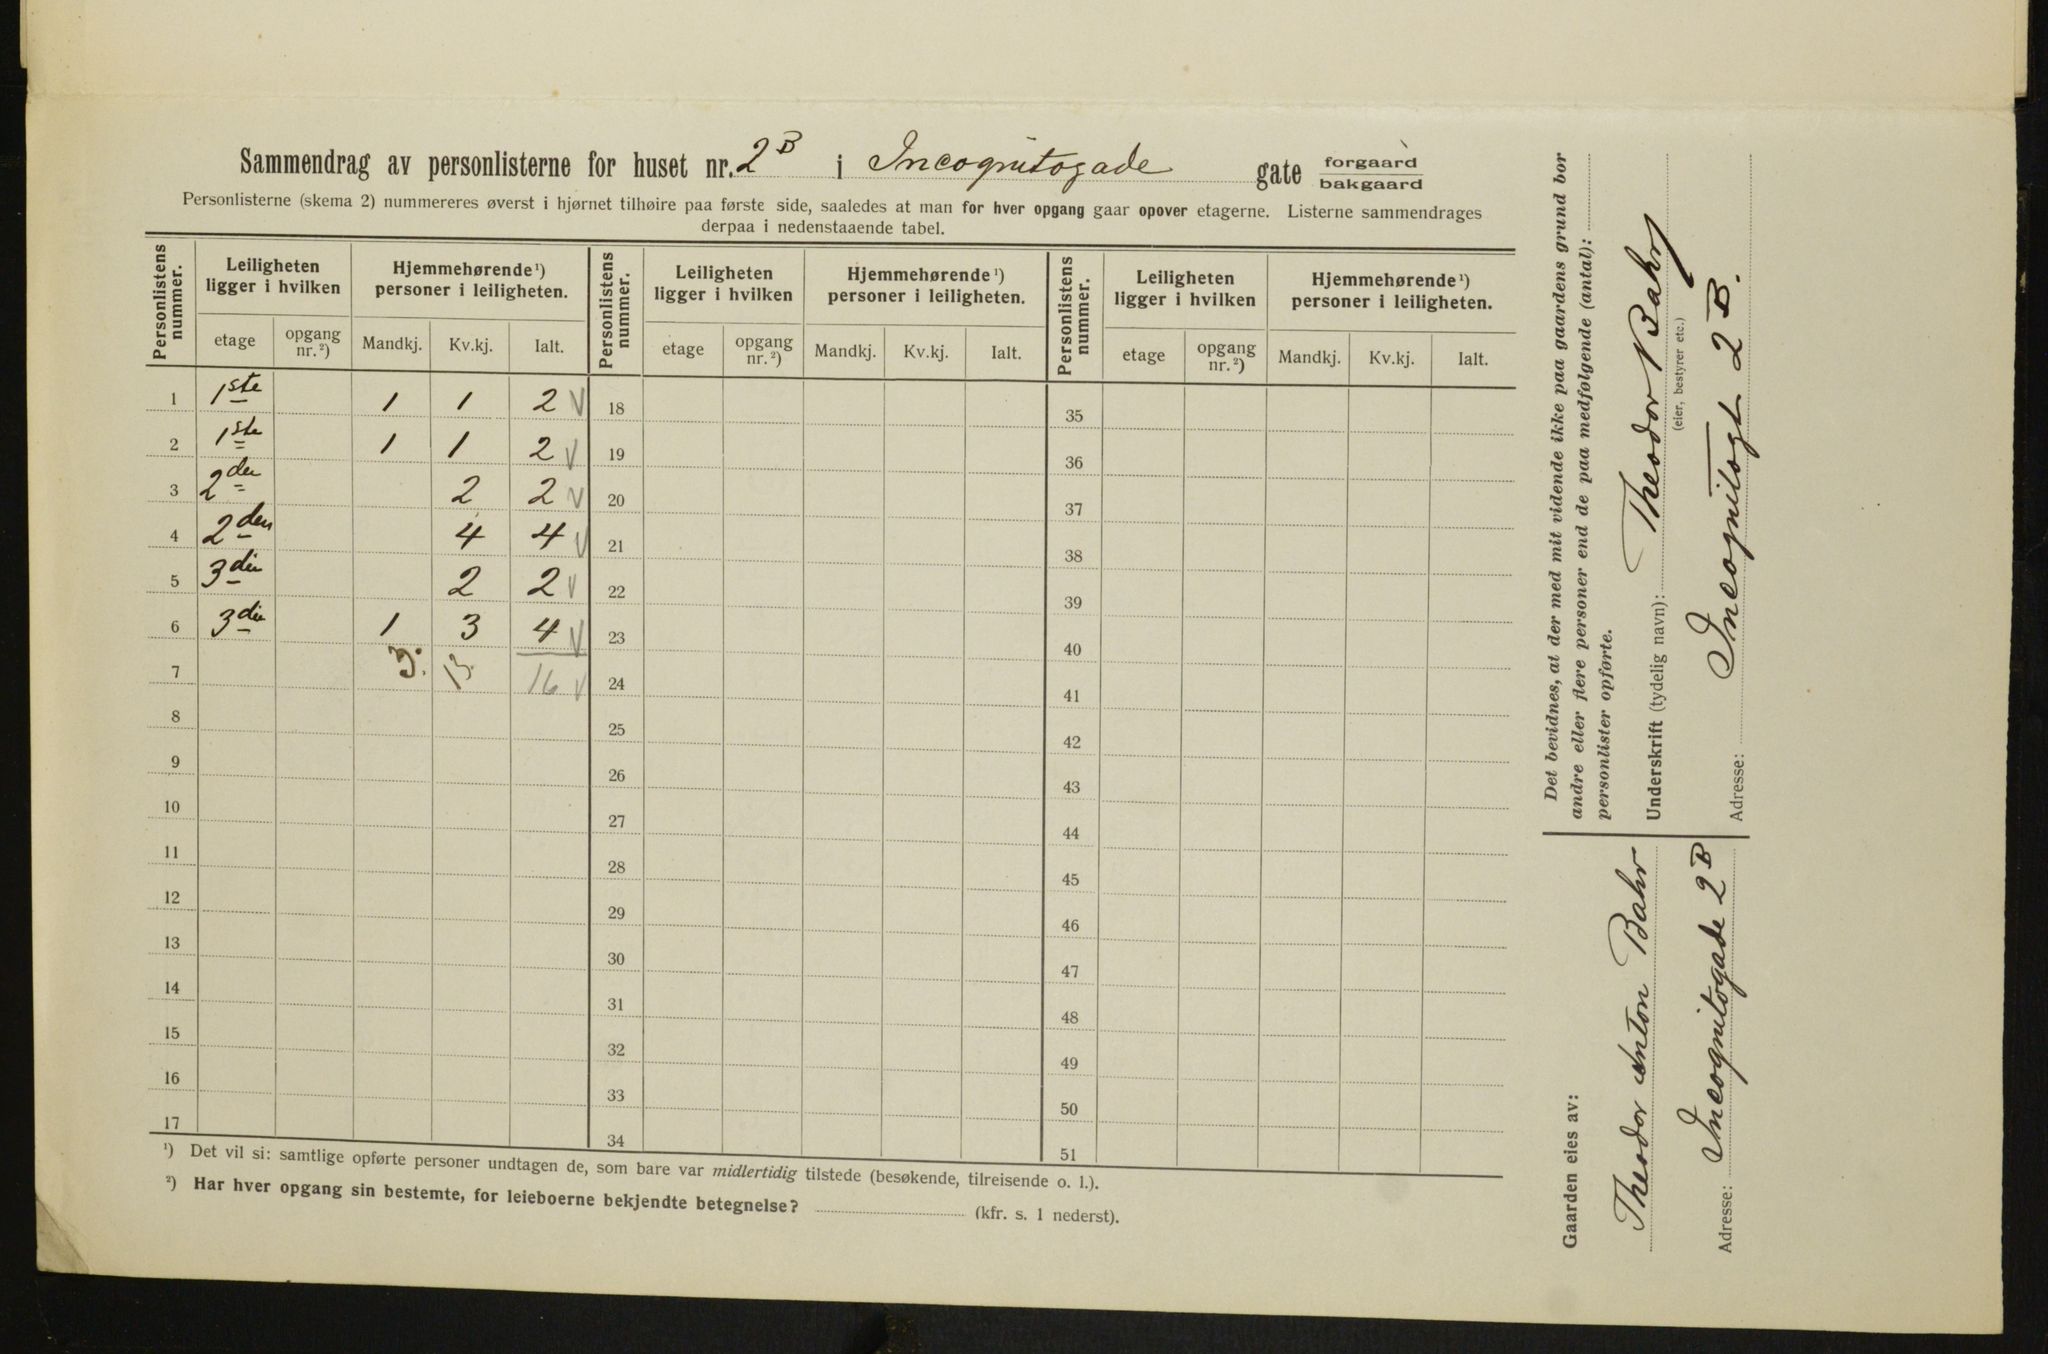 Sammendrag av personlisterne for huset nr. 2 B i Incognitogade gate forgaard bakgaard
Personlisterne (skema 2) nummereres øverst i hjørnet tilhøire paa første side, saaledes at man for hver opgang gaar opover etagerne. Listerne sammendrages
derpaa i nedenstaaende tabel.
Personlistens nummer. Leiligheten ligger i hvilken Hjemmehørende ¹) personer i leiligheten. Personlistens nummer. Leiligheten ligger i hvilken Hjemmehørende ¹) personer i leiligheten. Personlistens nummer. Leiligheten ligger i hvilken Hjemmehørende ¹) personer i leiligheten.
etage opgang nr. ²) Mandkj. Kv.kj. Ialt. etage opgang nr. ²) Mandkj. Kv.kj. Ialt. etage opgang nr. ²) Mandkj. Kv.kj. Ialt.
1 1ste 1 1 2 V 18 35
2 1ste 1 1 2 V 19 36
3 2den 2 2 V 20 37
4 2den 4 4 V 21 38
5 3die 2 2 V 22 39
6 3die 1 3 4 V 23 40
7 3. 13. 16 V 24 41
8 25 42
9 26 43
10 27 44
11 28 45
12 29 46
13 30 47
14 31 48
15 32 49
16 33 50
17 34 51
¹) Det vil si: samtlige opførte personer undtagen de, som bare var midlertidig tilstede (besøkende, tilreisende o. l.).
²) Har hver opgang sin bestemte, for leieboerne bekjendte betegnelse? (kfr. s. 1 nederst).
Det bevidnes, at der med mit vidende ikke paa gaardens grund bor
andre eller flere personer end de paa medfølgende (antal):
personlister opførte.
Underskrift (tydelig navn): Theodor Bahr
(eier, bestyrer etc.)
Adresse: Incognitogt 2 B.
Gaarden eies av:
Theodor Anton Bahr
Adresse: Incognitogade 2 B